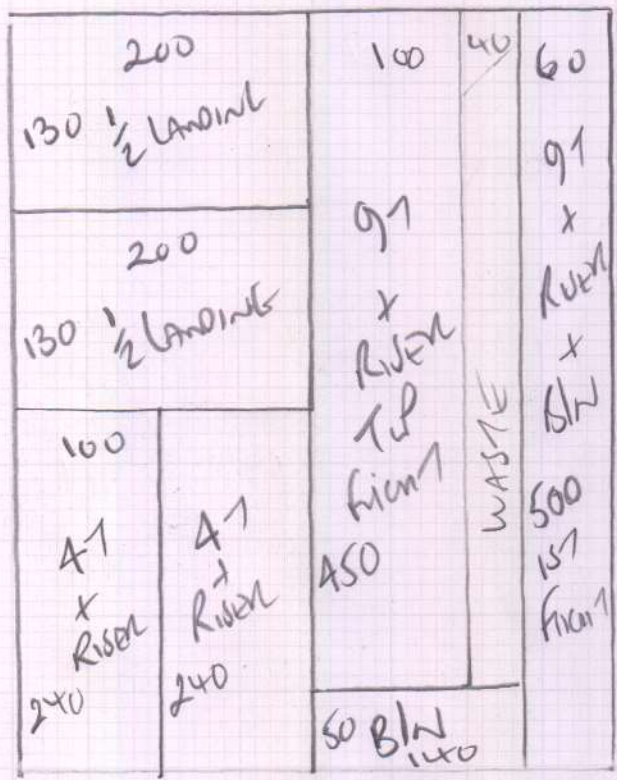 200
130 1/2 LANDING
200
130 1/2 LANDING
100
4T
X
RISER
240
4T
X
RISER
240
100
9T
X
RISER
TOP
FLIGHT
450
50 B/N
140
40
WASTE
60
9T
X
RISER
X
B/N
500
1ST
FLIGHT